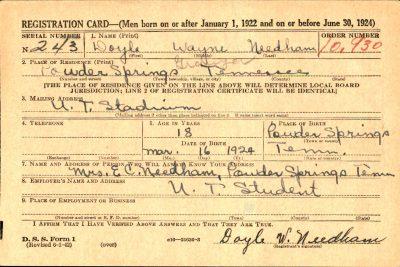 REGISTRATION CARD—(Men born on or after January 1, 1922 and on or before June 30, 1924)
SERIAL NUMBER 1. NAME (Print) ORDER NUMBER
N 243 Doyle Wayne Needham 10,930
(First) (Middle) (Last)
2. PLACE OF RESIDENCE (Print)
Powder Springs Tennessee
(Number and street) (Town, township, village, or city) (County) (State)
[THE PLACE OF RESIDENCE GIVEN ON THE LINE ABOVE WILL DETERMINE LOCAL BOARD
JURISDICTION; LINE 2 OF REGISTRATION CERTIFICATE WILL BE IDENTICAL]
3. MAILING ADDRESS
U. T. Stadium
[Mailing address if other than place indicated on line 2. If same insert word same]
4. TELEPHONE 5. AGE IN YEARS 6. PLACE OF BIRTH
18 Powder Springs
DATE OF BIRTH (Town or county)
Mar. 16 1924 Tenn.
(Exchange) (Number) (Mo.) (Day) (Yr.) (State or country)
7. NAME AND ADDRESS OF PERSON WHO WILL ALWAYS KNOW YOUR ADDRESS
Mrs. E. C. Needham, Powder Springs Tenn
8. EMPLOYER'S NAME AND ADDRESS
U. T. Student
9. PLACE OF EMPLOYMENT OR BUSINESS
(Number and street or R. F. D. number) (Town) (County) (State)
I AFFIRM THAT I HAVE VERIFIED ABOVE ANSWERS AND THAT THEY ARE TRUE.
D. S. S. Form 1
(Revised 6-9-42) (over) Doyle W. Needham
(Registrant's signature)